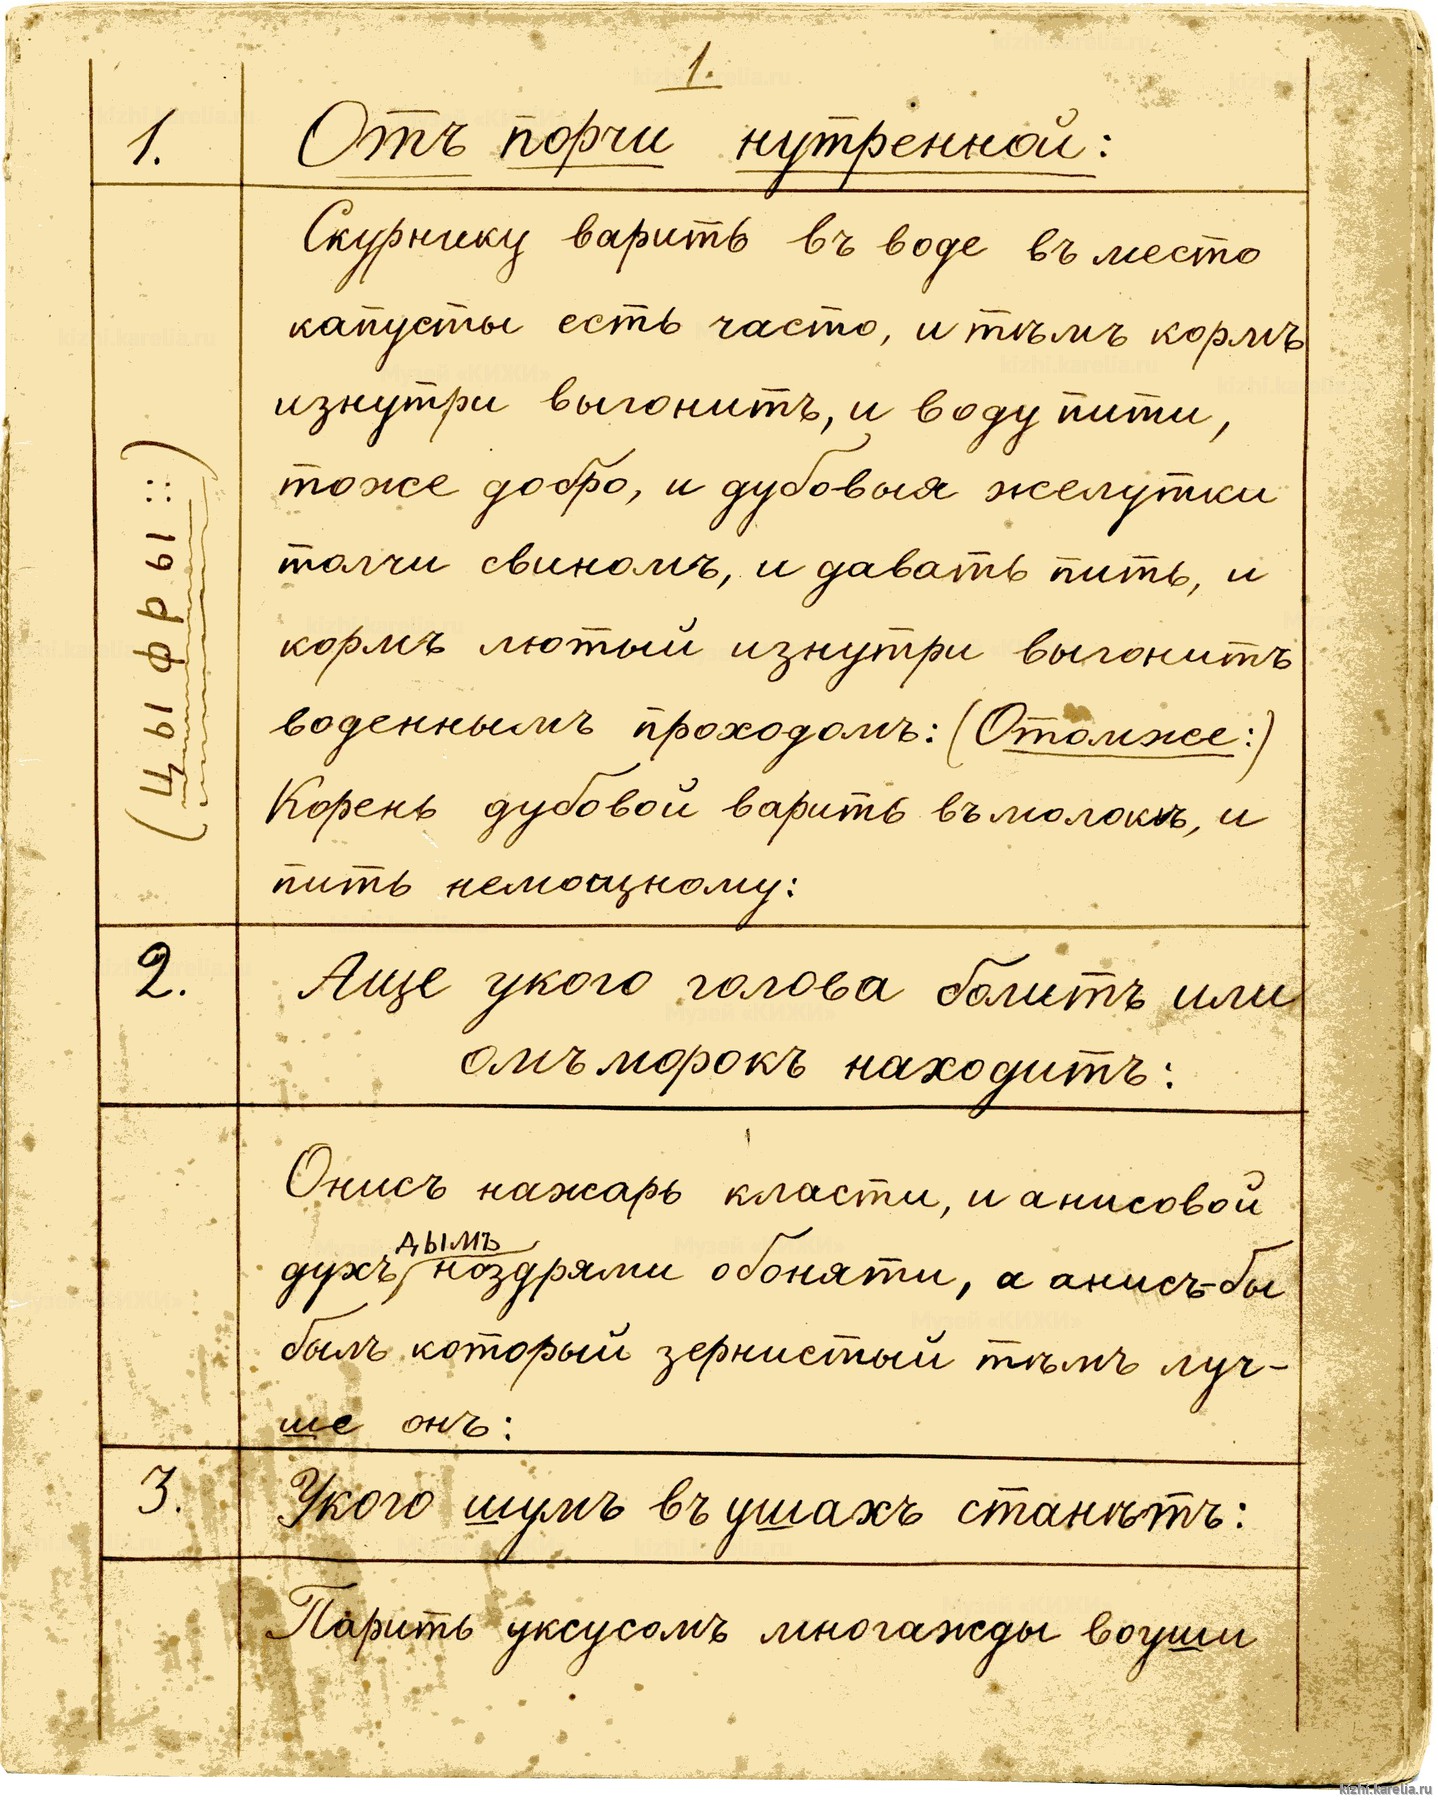 1.
1. Отъ порчи нутренной:
Скурнику варить въ воде въ место
капусты есть часто, и тѣмъ кормъ
изнутри выгонитъ, и воду пити,
тоже добро, и дубовыя желутки
толчи свиномъ, и давать пить, и
кормъ лютый изнутри выгонитъ
воденнымъ проходомъ: (Отомже:)
Корень дубовой варить въ молокѣ, и
пить немощному:
(Цыфры::)
2. Аще укого голова болитъ или
омъморокъ находитъ:
Онисъ нажарь класти, и анисовой
дымъ
духъ, ноздрями обоняти, а анисъ-бы
былъ который зернистый тѣмъ луч-
ше онъ:
3. Укого шумъ въ ушахъ станѣтъ:
Парить уксусомъ многажды воуши
kizhi.karelia.ru